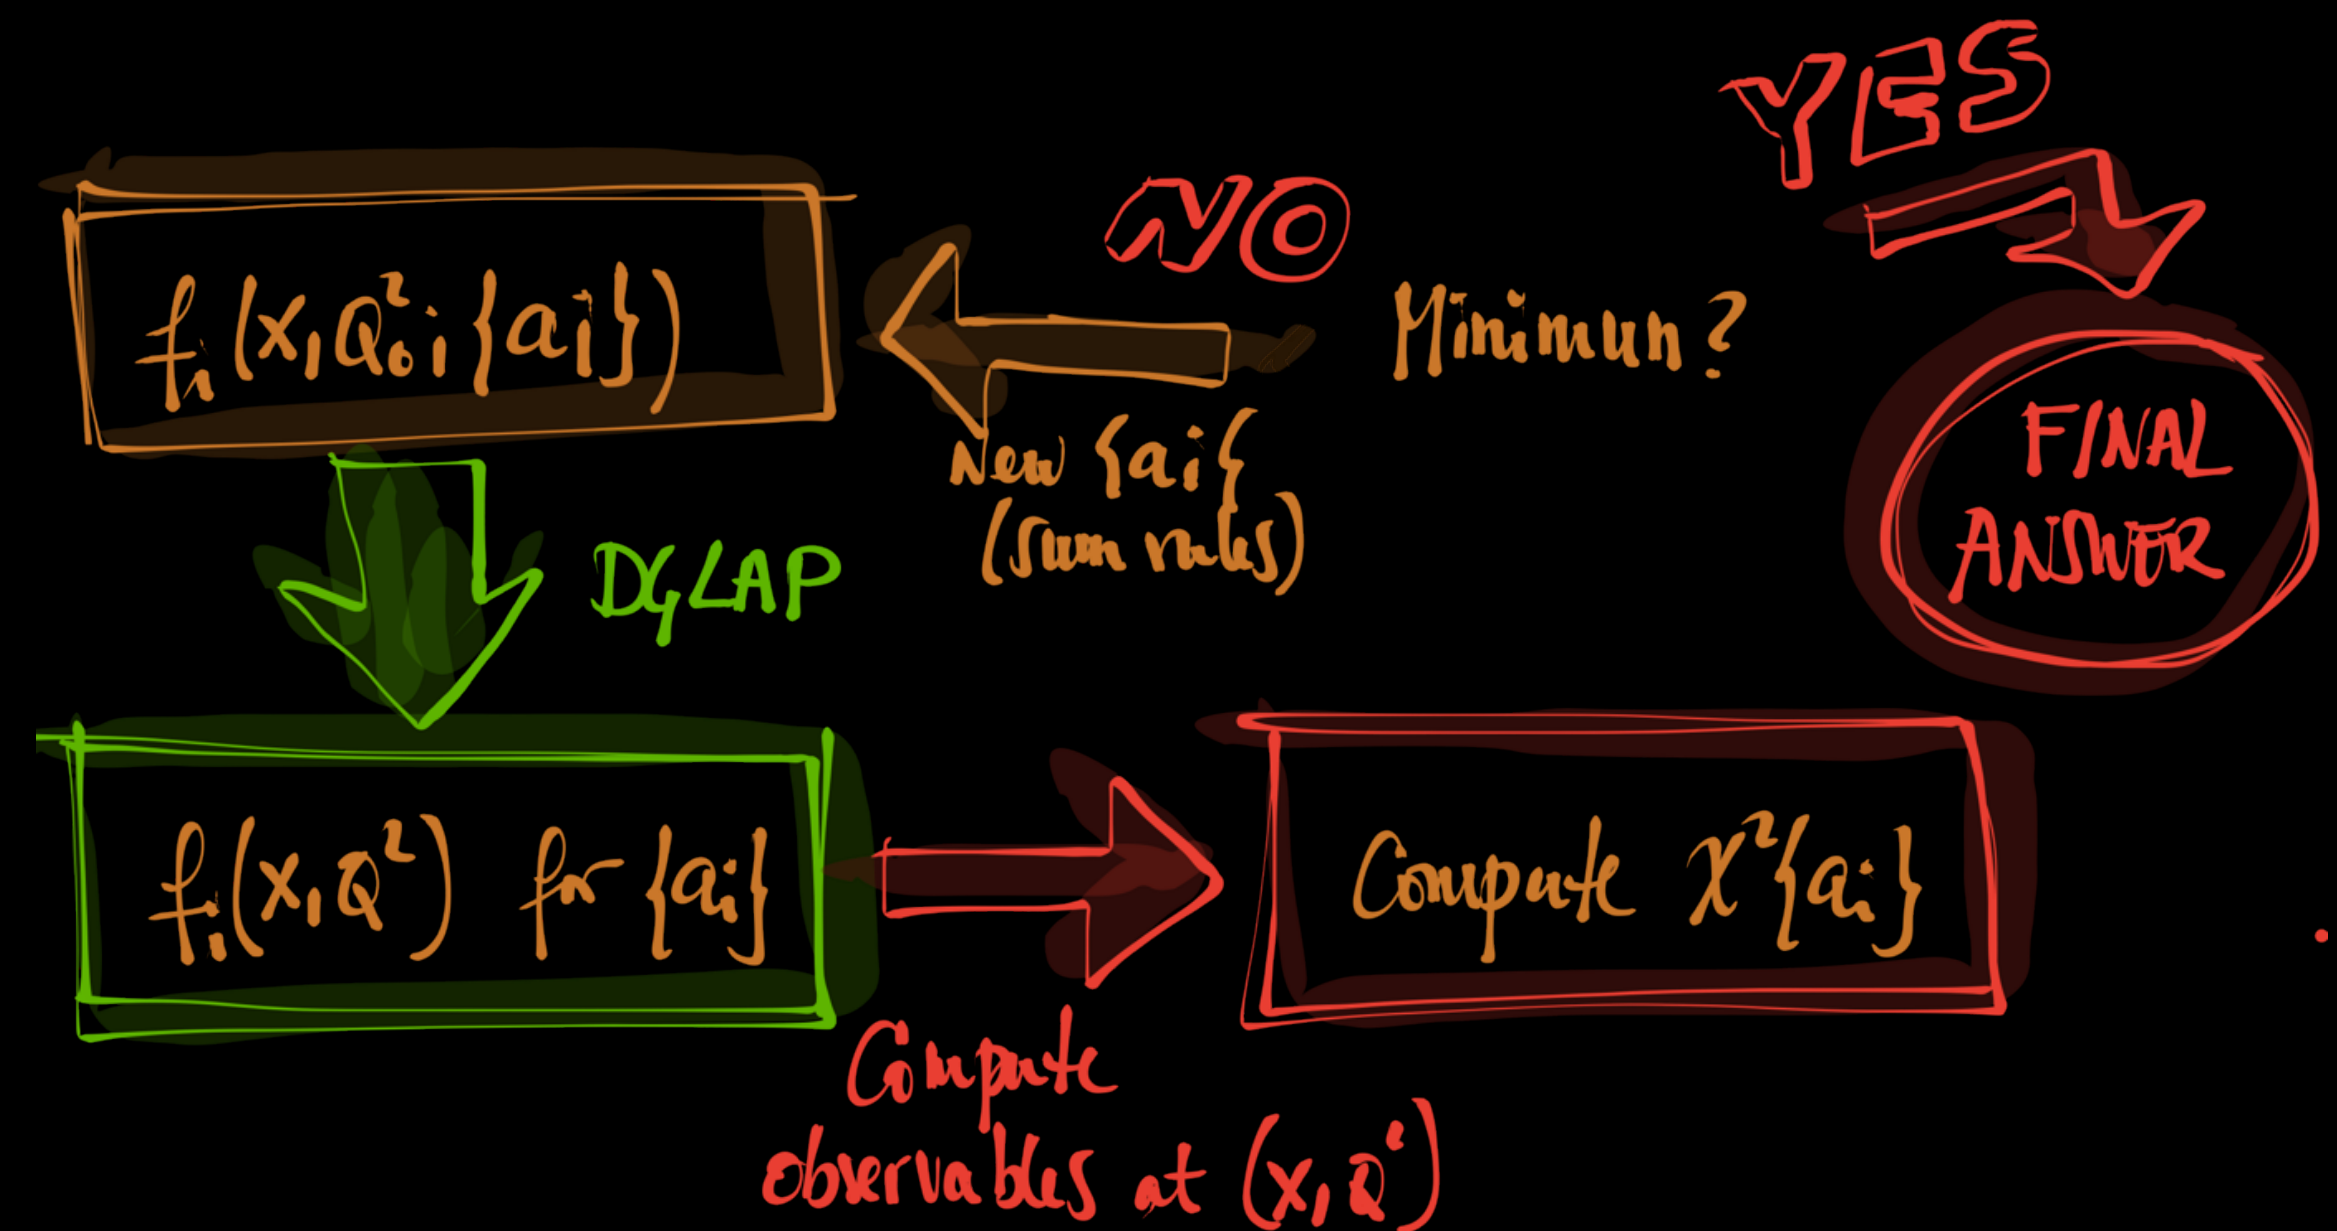 YES
NO
f_i(x, Q_0^2; {ai})
Minimun?
New {ai{
(sum rules)
FINAL
ANSWER
DGLAP
f_i(x, Q^2) for {ai}
Compute χ^2{ai}
Compute
observables at (x, Q^2)